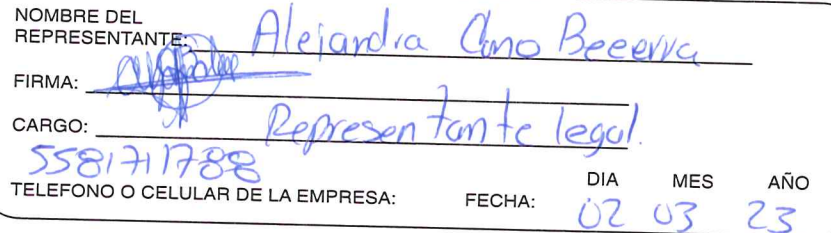 NOMBRE DEL
REPRESENTANTE: Alejandra Cano Becerra
FIRMA:
CARGO: Representante legal.
5581711788
TELEFONO O CELULAR DE LA EMPRESA: FECHA: DIA MES AÑO
02 03 23